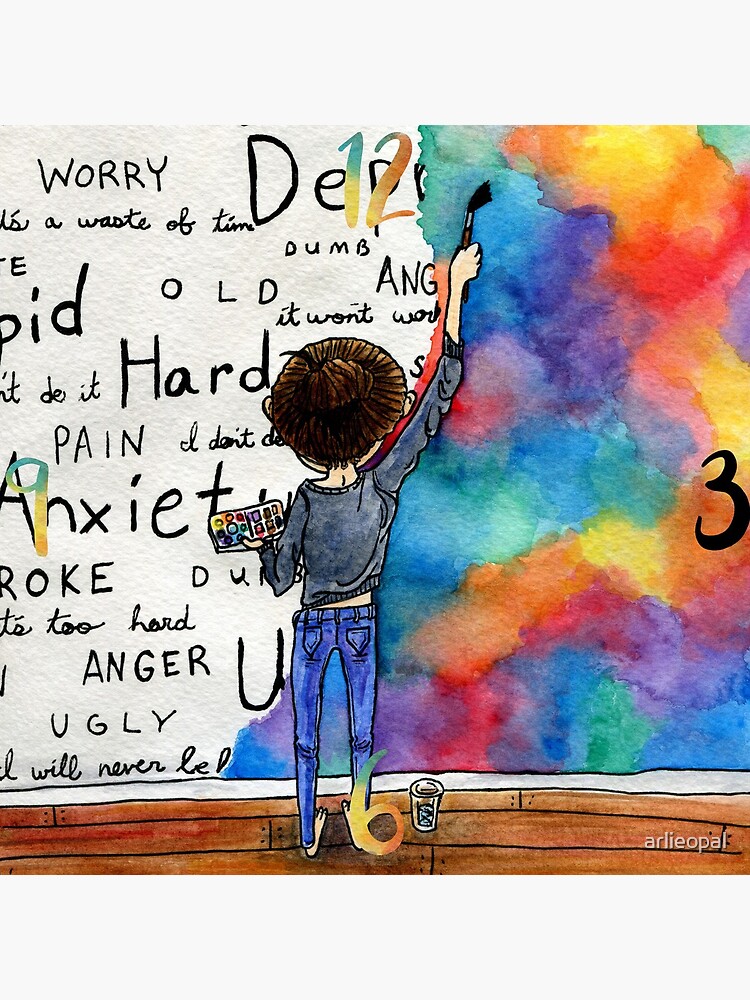 WORRY Depr 12
it's a waste of time
DUMB
TE
OLD ANG
pid it won't work
n't do it Hard s
PAIN I don't de
9 Anxiety 3
ROKE DUMB
it's too hard
ANGER U
UGLY
I will never be
6
arlieopal